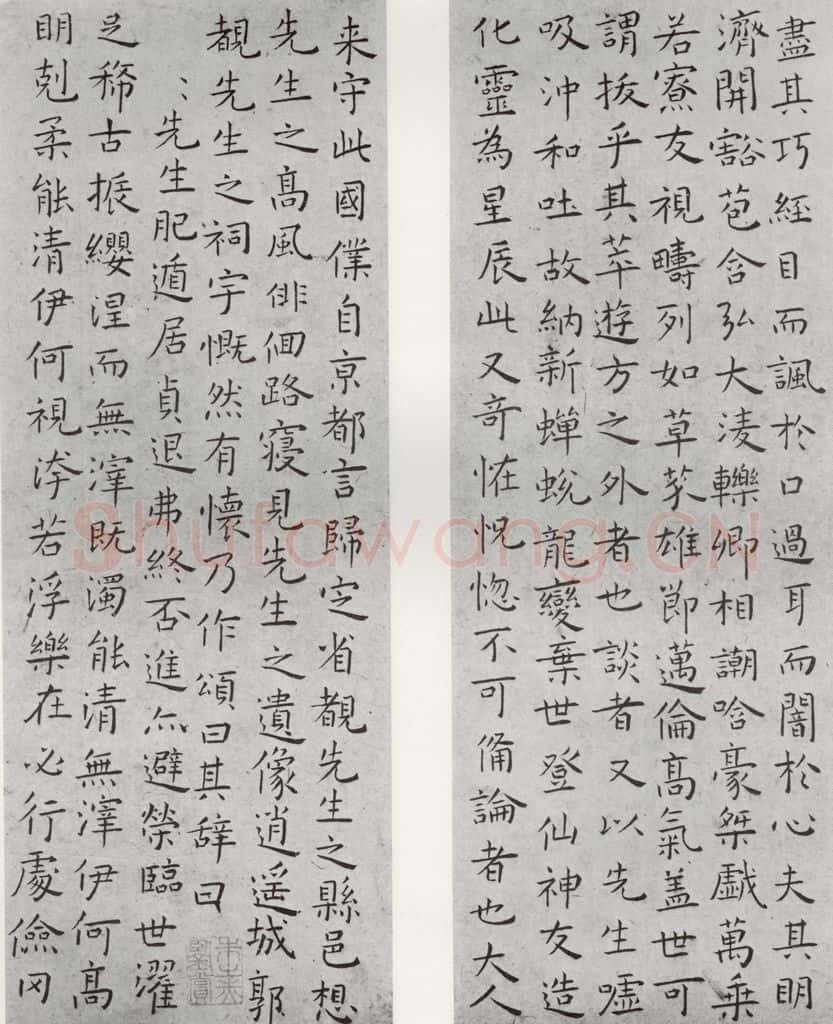 盡其巧經目而諷於口過耳而闇於心夫其明
濟開豁苞含弘大淩轢卿相謿哈豪桀戲萬乘
若寮友視疇列如草芥雄節邁倫高氣蓋世可
謂拔乎其萃遊方之外者也談者又以先生噓
吸沖和吐故納新蟬蛻龍變棄世登仙神友造
化靈為星辰此又奇怪怳惚不可備論者也大人
来守此國僕自京都言歸定省覩先生之縣邑想
先生之高風徘佪路寢見先生之遺像逍遥城郭
覩先生之祠宇慨然有懷乃作頌曰其辞曰
〻先生肥遁居貞退弗終否進亦避榮臨世濯
足稀古振纓涅而無滓既濁能清無滓伊何高
明剋柔能清伊何視汙若浮樂在必行處儉罔
Shufawang.CN